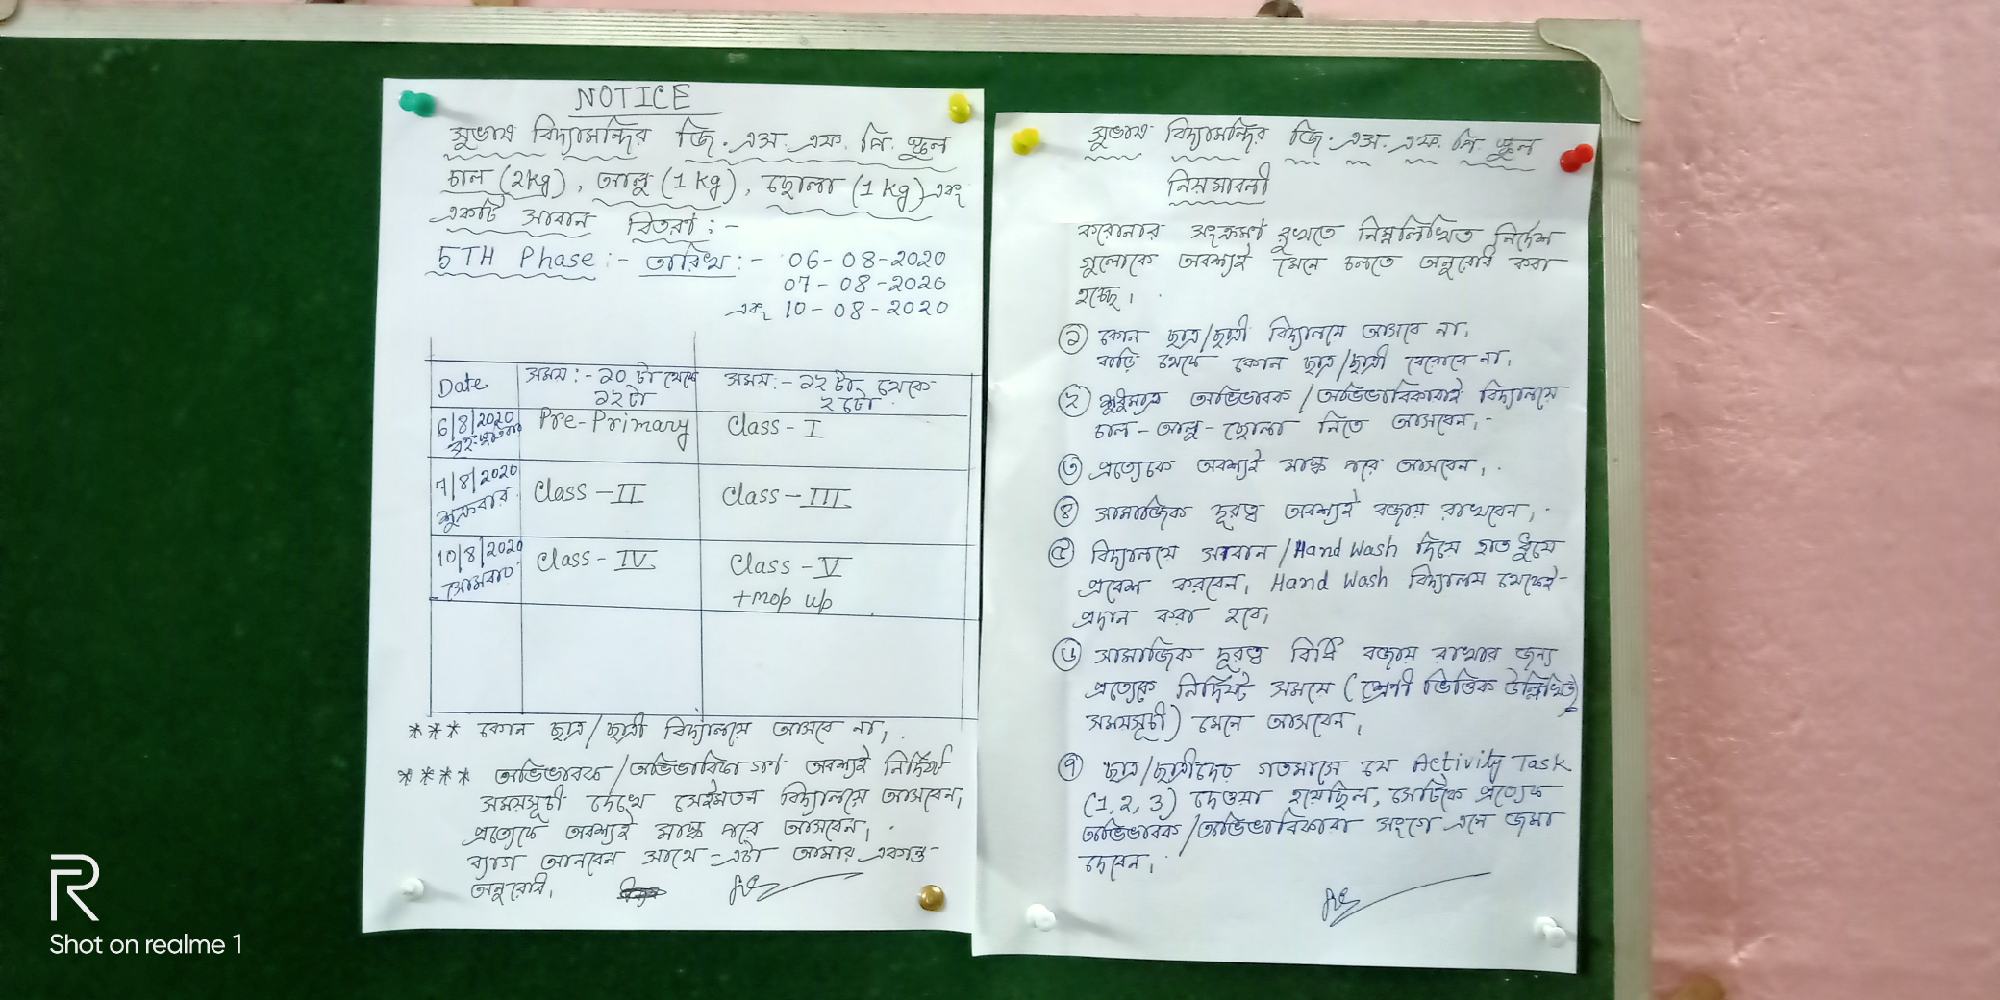 NOTICE
সুভাষ বিদ্যামন্দির জি. এস. এফ. পি. স্কুল
চাল (2kg), আলু (1 kg), ছোলা (1 kg) এবং
একটি সাবান বিতরণ :-
5TH Phase :- তারিখ :- 06-08-2020
07-08-2020
এবং 10-08-2020
Date সময় :- ১০ টা থেকে ১২টা সময় :- ১২ টা থেকে ২ টো
6/8/2020 বৃহস্পতিবার Pre-Primary Class - I
7/8/2020 শুক্রবার Class - II Class - III
10/8/2020 সোমবার Class - IV Class - V
+ mop up
*** কোন ছাত্র/ছাত্রী বিদ্যালয়ে আসবে না।
**** অভিভাবক/অভিভাবিকা গণ অবশ্যই নির্দিষ্ট
সময়সূচী দেখে সেইমতন বিদ্যালয়ে আসবেন।
প্রত্যেকে অবশ্যই মাস্ক পরে আসবেন।
ব্যাগ আনবেন সাথে - এটা আমার একান্ত
অনুরোধ।
সুভাষ বিদ্যামন্দির জি. এস. এফ. পি. স্কুল
নিয়মাবলী
করোনার সংক্রমণ রুখতে নিম্নলিখিত নির্দেশ
গুলোকে অবশ্যই মেনে চলতে অনুরোধ করা
হচ্ছে।
১ কোন ছাত্র/ছাত্রী বিদ্যালয়ে আসবে না।
বাড়ি থেকে কোন ছাত্র/ছাত্রী বেরোবে না।
২ শুধুমাত্র অভিভাবক/অভিভাবিকারাই বিদ্যালয়ে
চাল - আলু - ছোলা নিতে আসবেন।
৩ প্রত্যেকে অবশ্যই মাস্ক পরে আসবেন।
৪ সামাজিক দূরত্ব অবশ্যই বজায় রাখবেন।
৫ বিদ্যালয়ে সাবান/Hand Wash দিয়ে হাত ধুয়ে
প্রবেশ করবেন। Hand Wash বিদ্যালয় থেকেই
প্রদান করা হবে।
৬ সামাজিক দূরত্ব বিধি বজায় রাখার জন্য
প্রত্যেকে নির্দিষ্ট সময়ে (শ্রেণী ভিত্তিক উল্লিখিত
সময়সূচী) মেনে আসবেন।
৭ ছাত্র/ছাত্রীদের গতমাসে যে Activity Task
(1, 2, 3) দেওয়া হয়েছিল, সেটিকে প্রত্যেক
অভিভাবক/অভিভাবিকারা সংগে এনে জমা
দেবেন।
R
Shot on realme 1